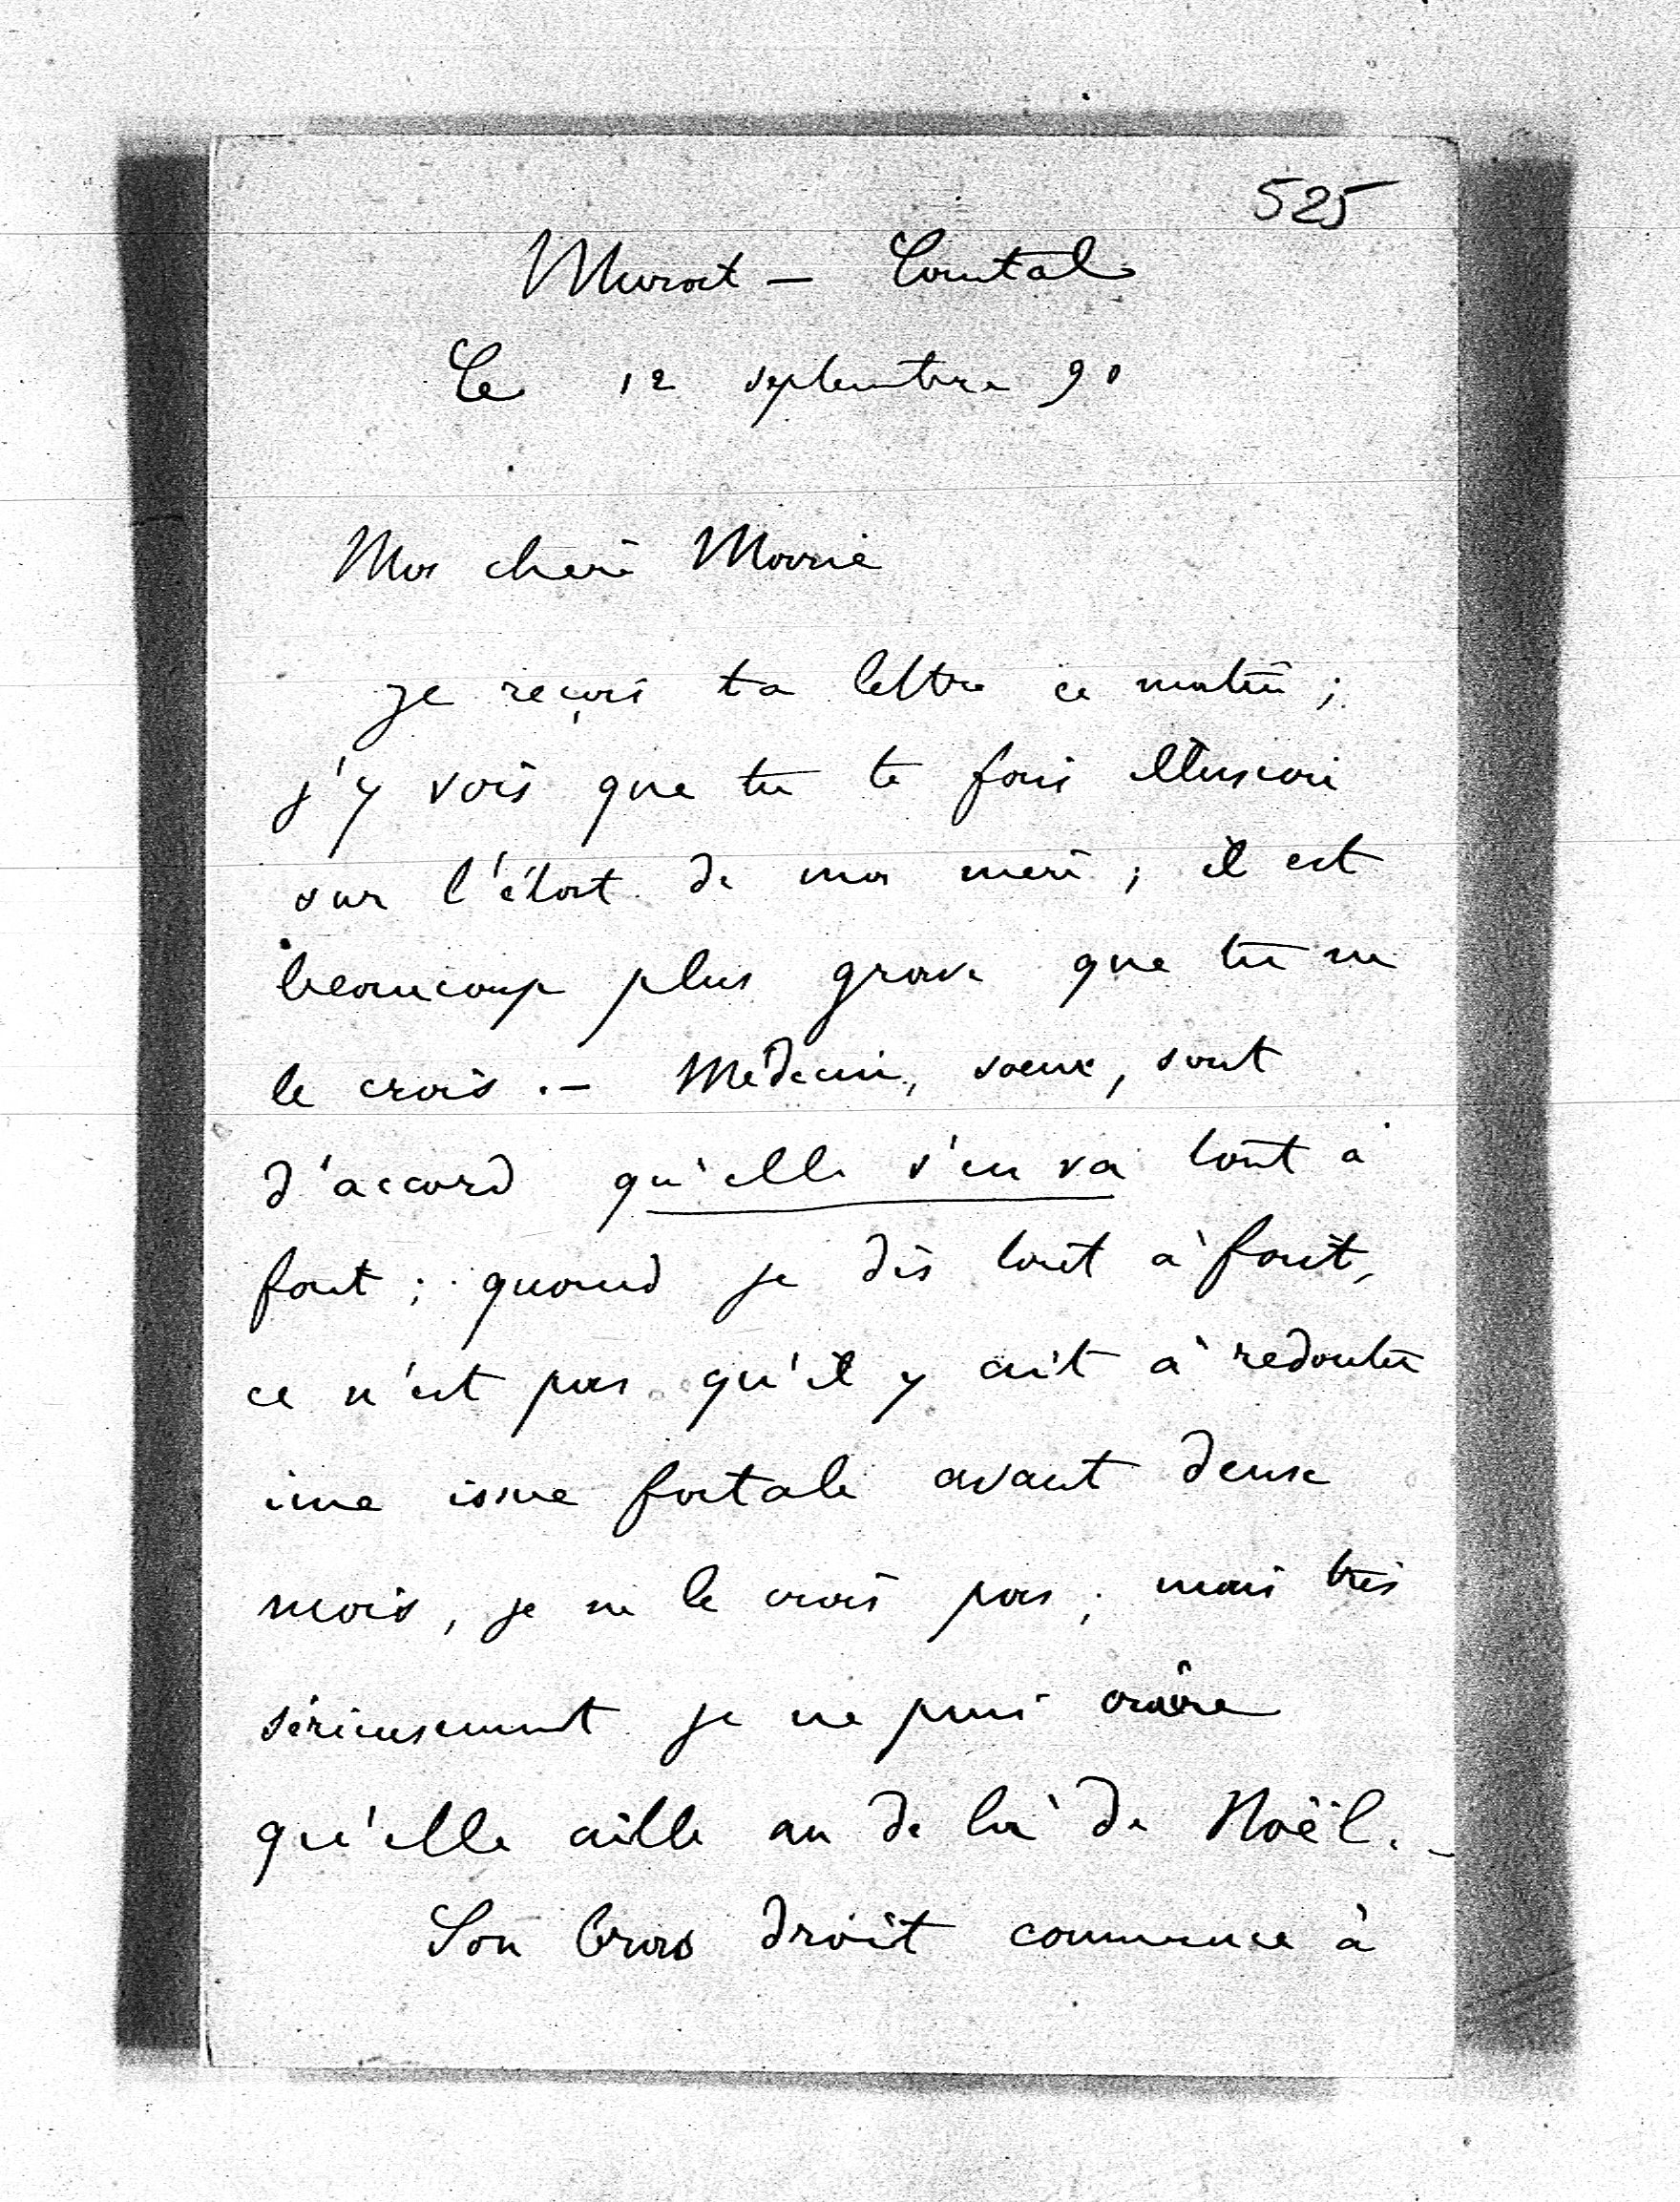 525
Murat — Cantal
Le 12 septembre 90
Ma chère Marie
je reçois ta lettre ce matin ;
j'y vois que tu te fais illusion
sur l'état de ma mère ; il est
beaucoup plus grave que tu ne
le crois. — Médecin, soeur, sont
d'accord qu'elle s'en va tout à
fait ; quand je dis tout à fait,
ce n'est pas qu'il y ait à redouter
une issue fatale avant deux
mois, je ne le crois pas ; mais très
sérieusement je ne puis croire
qu'elle aille au de là de Noël. —
Son bras droit commence à